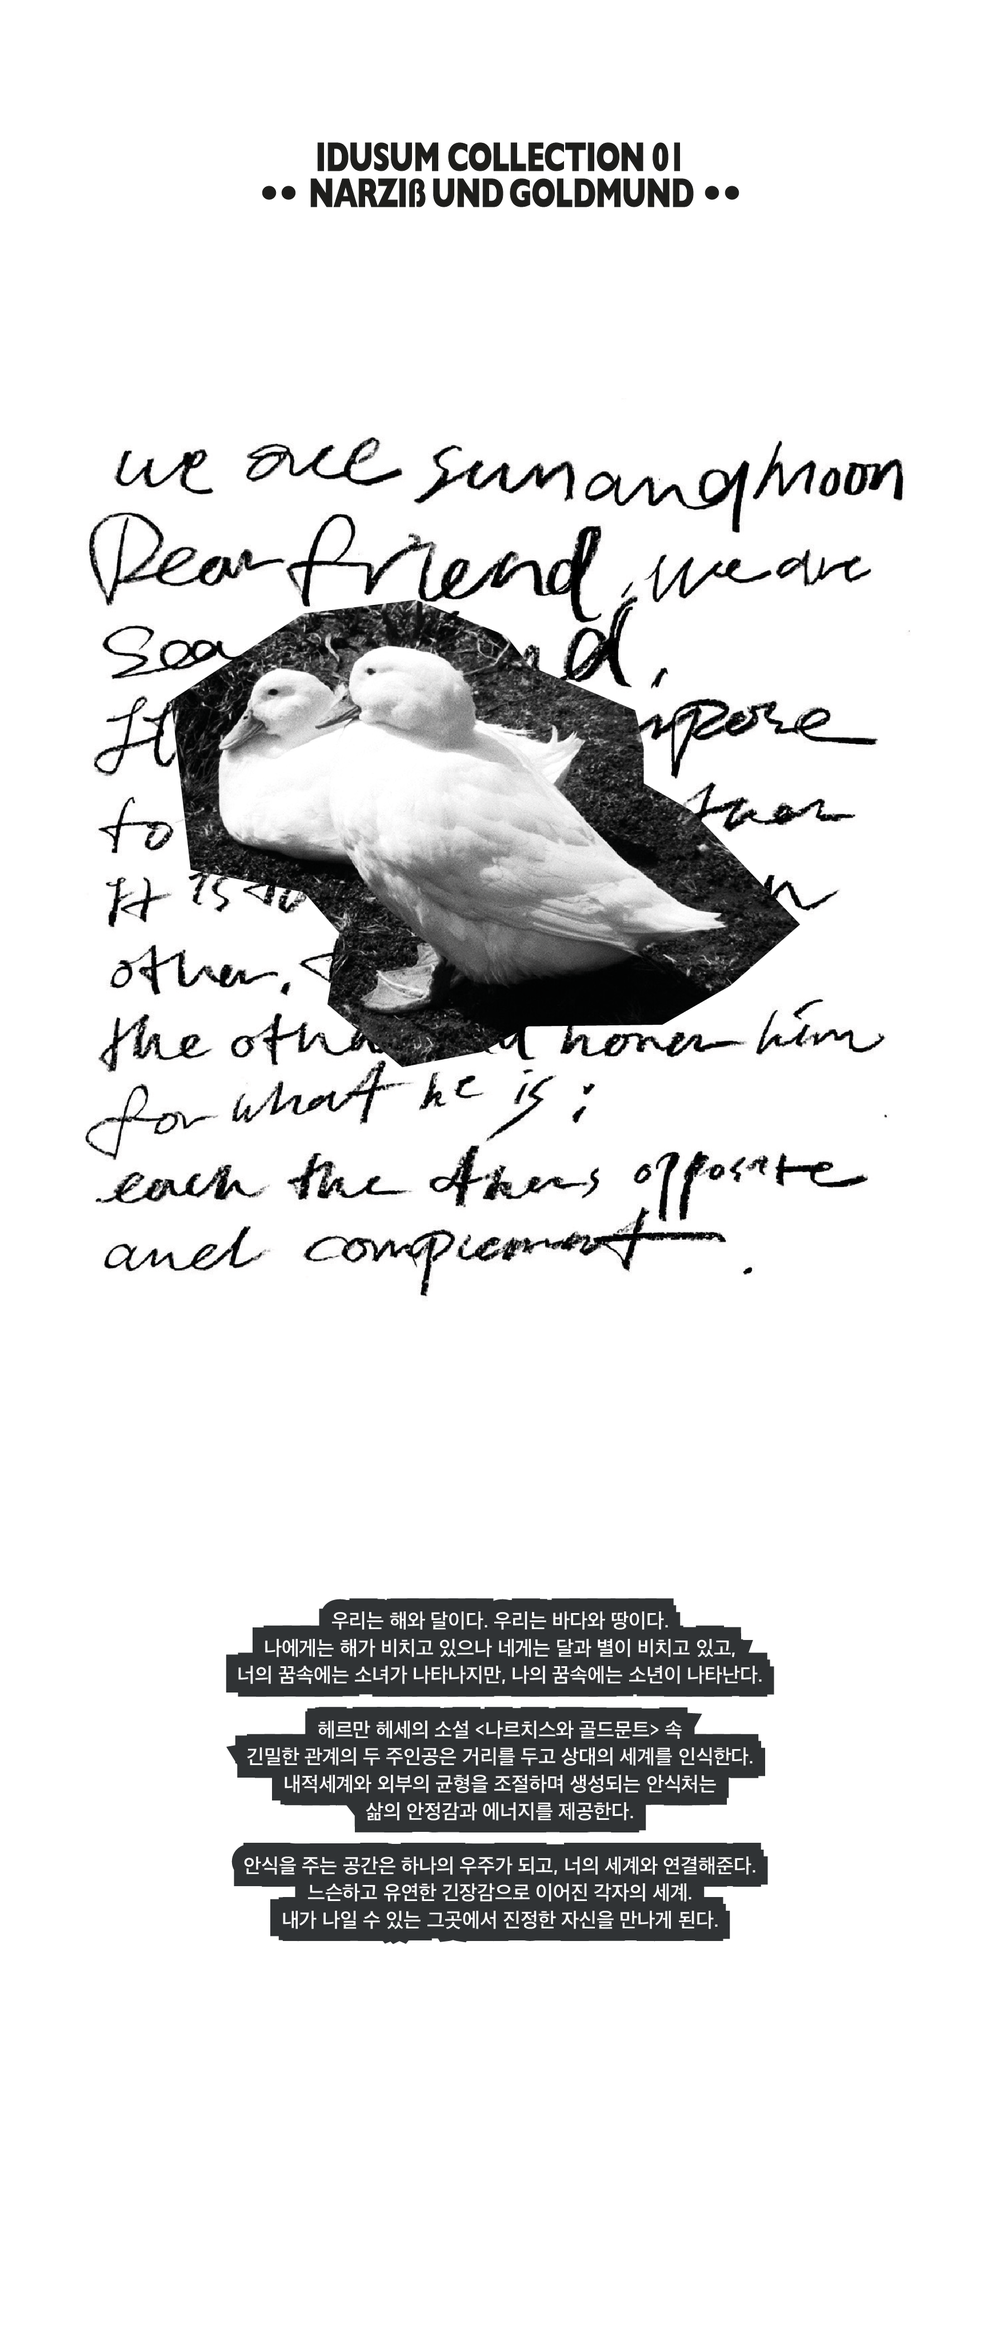 IDUSUM COLLECTION 01
•• NARZIß UND GOLDMUND ••
we are sun and Moon
Dear friend, we are
Sea
It
to
It is to
other,
the honor him
for what he is;
each the others opposite
and complement.
우리는 해와 달이다. 우리는 바다와 땅이다.
나에게는 해가 비치고 있으나 네게는 달과 별이 비치고 있고,
너의 꿈속에는 소녀가 나타나지만, 나의 꿈속에는 소년이 나타난다.
헤르만 헤세의 소설 <나르치스와 골드문트> 속
긴밀한 관계의 두 주인공은 거리를 두고 상대의 세계를 인식한다.
내적세계와 외부의 균형을 조절하며 생성되는 안식처는
삶의 안정감과 에너지를 제공한다.
안식을 주는 공간은 하나의 우주가 되고, 너의 세계와 연결해준다.
느슨하고 유연한 긴장감으로 이어진 각자의 세계.
내가 나일 수 있는 그곳에서 진정한 자신을 만나게 된다.